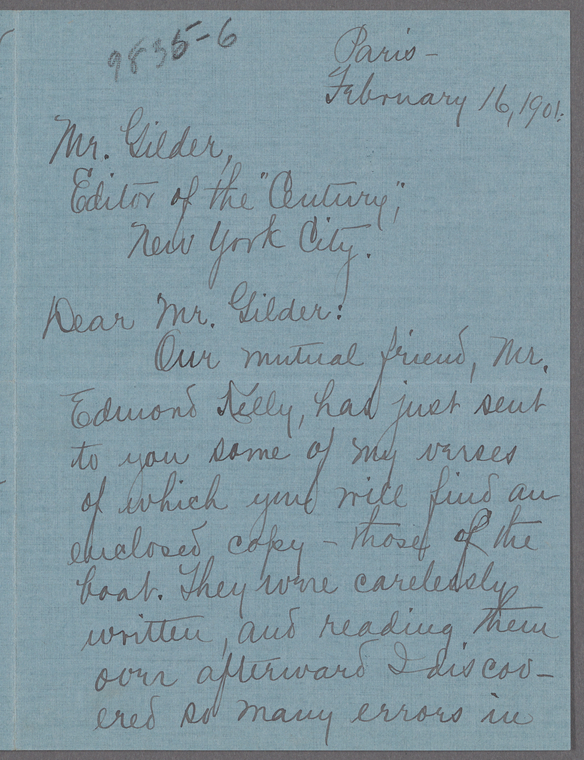 9835-6
Paris -
February 16, 1901.
Mr. Gilder,
Editor of the "Century",
New York City.
Dear Mr. Gilder:
Our mutual friend, Mr.
Edmond Kelly, has just sent
to you some of my verses
of which you will find an
enclosed copy - those of the
boat. They were carelessly
written, and reading them
over afterward I discov-
ered so many errors in